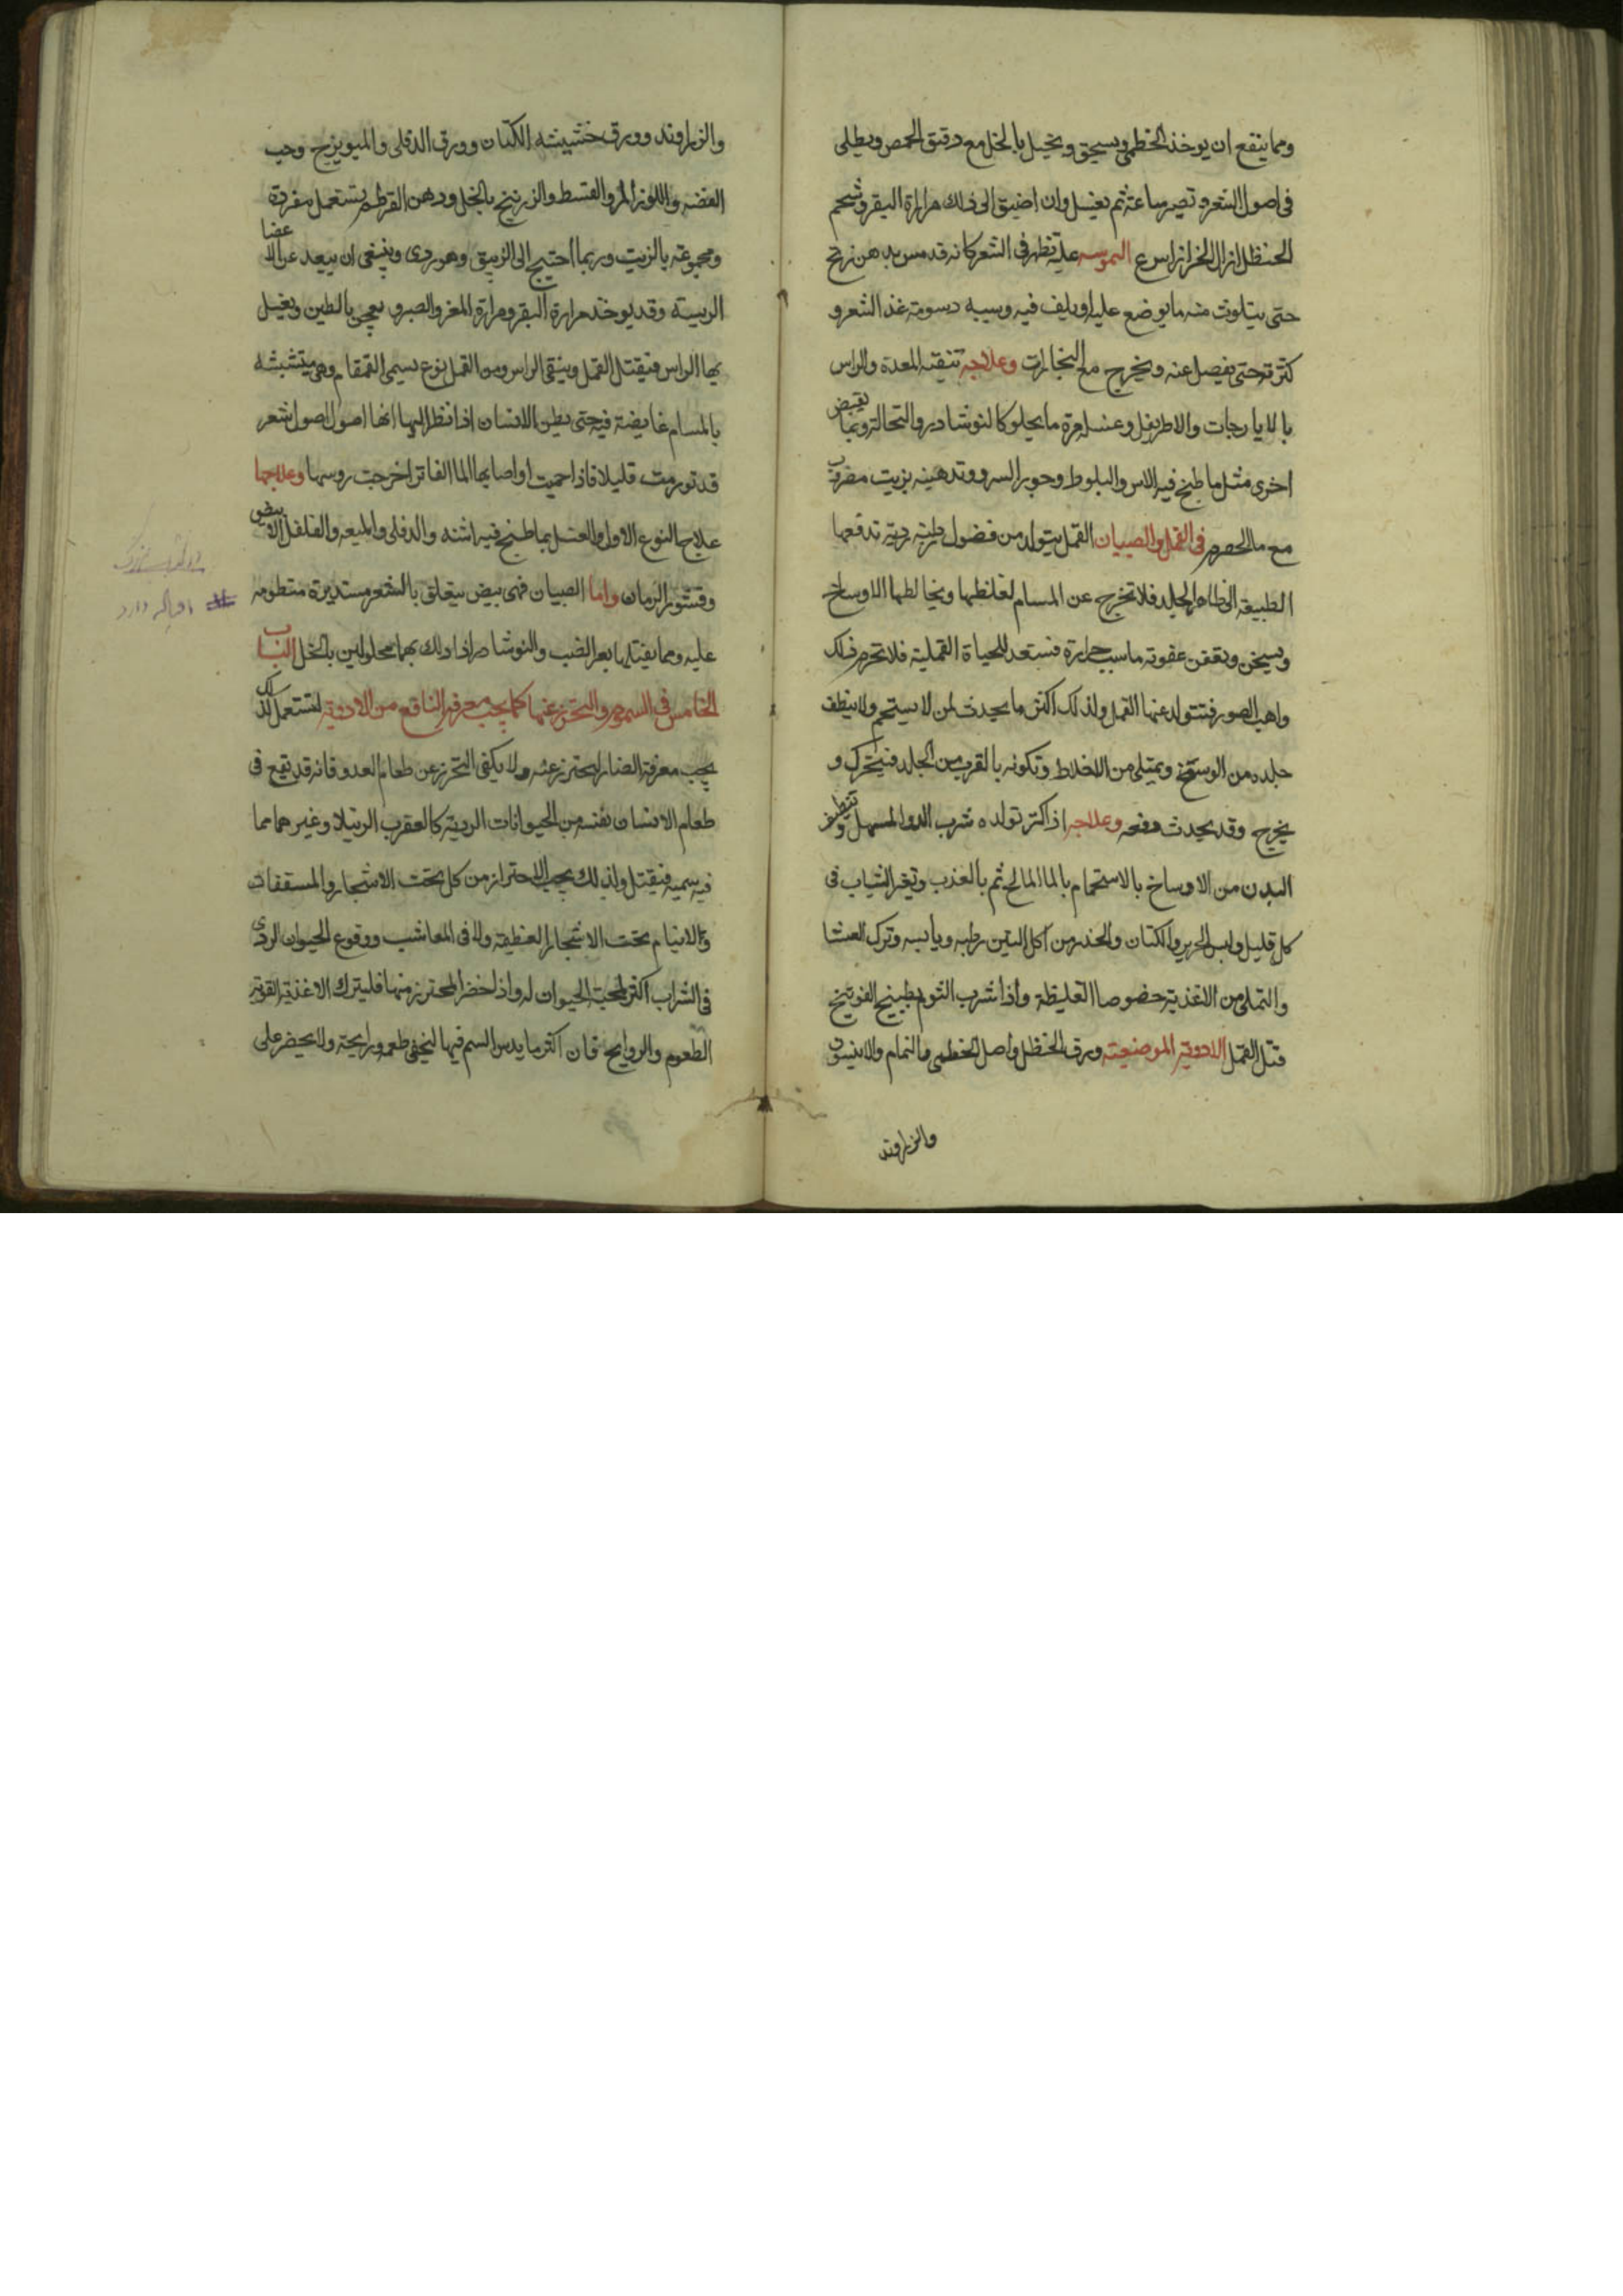 ومما ينفع ان يوخذ الخطمى ويسحق ويخيل بالخل مع دقيق الحمص ويطلى
فى اصول الشعر ويصبر ساعة ثم يغسل وان اضيق الى ذلك مرارة البقر وشحم
الحنظل ازال الخزاز اسرع علة تظهر فى الشعر كانه قد مس بدهن زنخ
حتى يتلوث منه ما يوضع عليه او يلف فيه وسببه دسومة غذا الشعر و
كثرته حتى يفصل عنه ويخرج مع البخارات وعلاجه تنقيه المعدة والراس
بالايارجات والاطريفل وغسله مرة ما يحلو كالنوشادر والنخالة وبما يقبض
اخرى مثل ما طبخ فيه الاس والبلوط وجوز السرو وتدهينه بزيت مضروب
مع ما الحصرم فى القمل والصيبان القمل يتولد من فضول رطبه رديه تدفعها
الطبيعه الى ظاهر الجلد فلا تخرج عن المسام لغلظها ويخالطها الاوساخ
ويسخن ويعفن عفونه ما سبب حرارة فتستعد للحياة القملية فلا تحرم ذلك
واهب الصور فيتولد عنها القمل ولذلك اكثر ما يحدث لمن لا يستحم ولا ينظف
جلده من الوسخ ويمتلى من الاخلاط وتكونه بالقرب من الجلد فيتحرك و
يخرج وقد يحدث دفعه وعلاجه اذ اكثر تولده شرب الدوا المسهل وتنظيف
البدن من الاوساخ بالاستحمام بالما المالح ثم بالعذب وتغير الثياب فى
كل قليل ولبس الحرير والكتان والحذر من اكل التين رطبه ويابسه وترك العشا
والتملى من الاغذية خصوصا الغليظة واذا شرب الثوم بطبيخ الفوتنج
قتل القمل الادوية الموضعيته ورق الحنظل واصل الخطمى والنمام والانيسون
والزراوند
والزراوند وورق خشيشه الكتان وورق الدفلى والميويزج وحب
الفضه واللوز المر والقسط والزرنيخ بالخل ودهن القرطم يستعمل مفردة
ومجموعة بالزيت وربما احتيج الى الزيبق وهو ردى وينبغى ان يبعد عن الاعضا
الرييسه وقد يوخذ مرارة البقر ومرارة المغز والصبر يعجن بالطين ويغسل
بها الراس فيقتل القمل وينقى الراس ومن القمل نوع يسمى القمقام وهى متشبثه
بالمسام غايضة فيه حتى يظن الانسان اذا نظر اليها انها اصول شعر
قد تورمت قليلا فاذا احميت او اصابها الما الفاتر اخرجت روسها وعلاجها
علاج النوع الاول والغسل بما طبخ فيه اشنه والدفلى والميعه والفلفل الابيض
وقشور الرمان واما الصيبان فهى بيض يتعلق بالشعر مستديرة منظومه
عليه ومما يقتلها بعر الضب والنوشادر اذا دلك بهما محلولين بالخل الباب
الخامس فى السموم والتحرز عنها كما يجب معرفة النافع من الادوية لتستعمل كذلك
يجب معرفة الضار ليحترز عنه ولا يكفى التحرز عن طعام العدو فانه قد يقع فى
طعام الانسان نفسه من الحيوانات الرديه كالعقرب الرتيلا وغيرهما مما
فيه سميه فيقتل ولذلك يجب الاحتراز من كل تحت الاشجار والمسقفات
والانيام تحت الاشجار العظيمه ولا فى المعاشب ووقوع الحيوان الردى
فى الشراب اكثر لمحبة الحيوان له واذ احضر المحترز منها فليترك الاغذية القوية
الطعوم والروايح فان اكثر ما يدس السم فيها ليخفى طعمه ورايحته ولا يحضر على